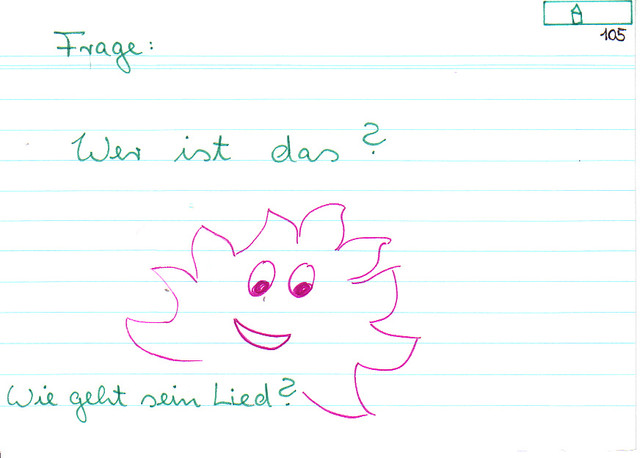 105
Frage:
Wer ist das?
Wie geht sein Lied?